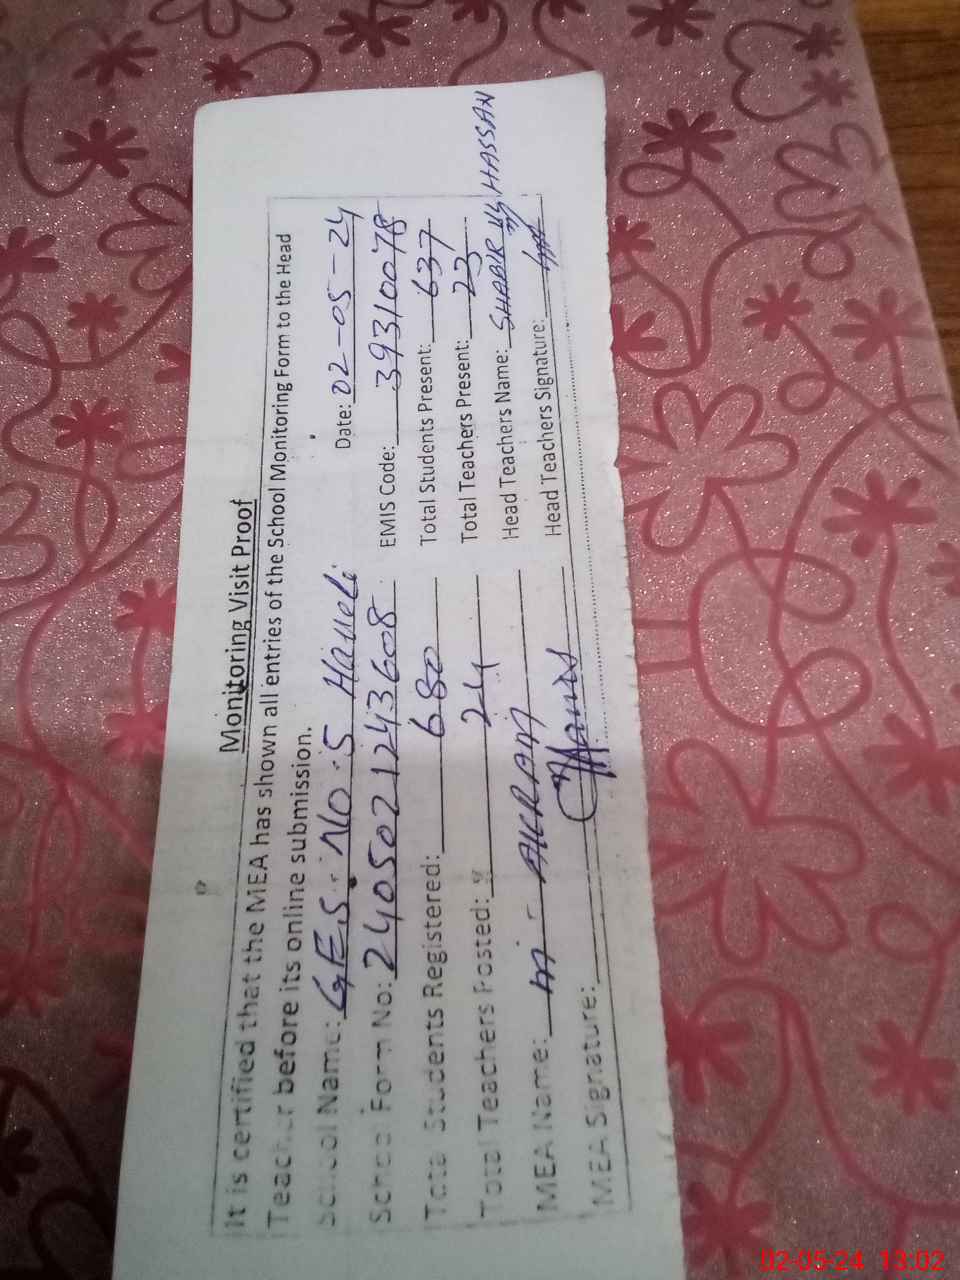 Monitoring Visit Proof
It is certified that the MEA has shown all entries of the School Monitoring Form to the Head
Teacher before its online submission.
School Name: G.E.S. No. 5 Haveli Date: 02-05-24
School Form No: 2405021243608 EMIS Code: 39310078
Total Students Registered: 680 Total Students Present: 637
Total Teachers Posted: 24 Total Teachers Present: 23
MEA Name: M - AKRAM Head Teachers Name: SHABIR HASSAN
MEA Signature: Head Teachers Signature:
02-05-24 13:02